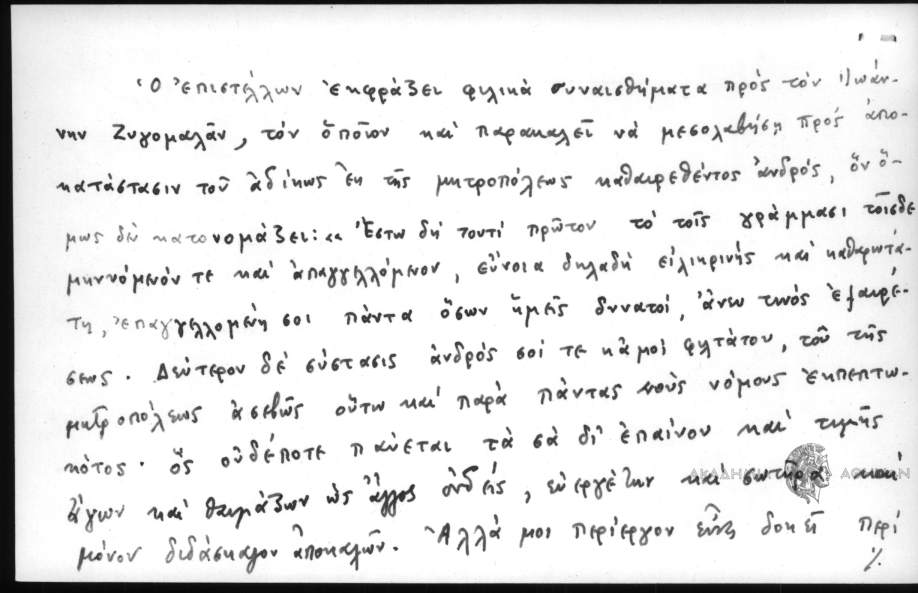 Ὁ ἐπιστέλλων ἐκφράζει φιλικὰ συναισθήματα πρὸς τὸν Ἰωάν-
νην Ζυγομαλᾶν, τὸν ὁποῖον καὶ παρακαλεῖ νὰ μεσολαβήσῃ πρὸς ἀπο-
κατάστασιν τοῦ ἀδίκως ἐκ τῆς μητροπόλεως καθαιρεθέντος ἀνδρός, ὃν ὅ-
μως δὲν κατονομάζει: «Ἔστω δὴ τουτὶ πρῶτον τὸ τοῖς γράμμασι τοῖσδε
μηνυόμενόν τε καὶ ἀπαγγελλόμενον, εὔνοια δηλαδὴ εἰλικρινὴς καὶ καθαρωτά-
τη, ἐπαγγελλομένη σοι πάντα ὅσων ἡμεῖς δυνατοί, ἄνευ τινὸς ἐξαιρέ-
σεως. Δεύτερον δὲ σύστασις ἀνδρὸς σοί τε κἀμοὶ φιλτάτου, τοῦ τῆς
μητροπόλεως ἀσεβῶς οὕτω καὶ παρὰ πάντας τοὺς νόμους ἐκπεπτω-
κότος· ὃς οὐδέποτε παύεται τὰ σὰ δι' ἐπαίνου καὶ τιμῆς
ἄγων καὶ θαυμάζων ὡς ἄλλος οὐδείς, εὐεργέτην καὶ σωτῆρα καὶ
μόνον διδάσκαλον ἀποκαλῶν. Ἀλλά μοι περίεργον εἶναι δοκεῖ περὶ
%
ΑΚΑΔΗΜΙΑ ΑΘΗΝΩΝ